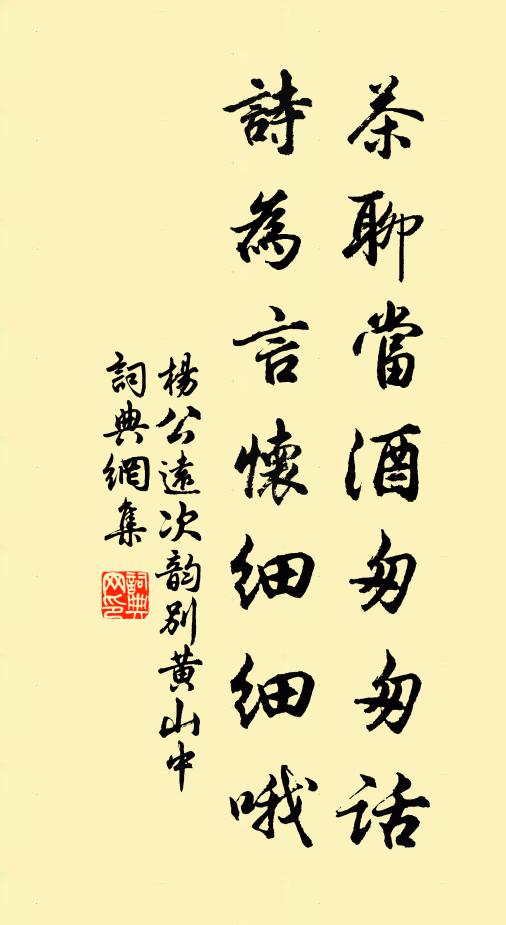 茶聊當酒匆匆話
詩為言懷細細哦
楊公遠次韵别黄山中
詞典網集
詞典网印